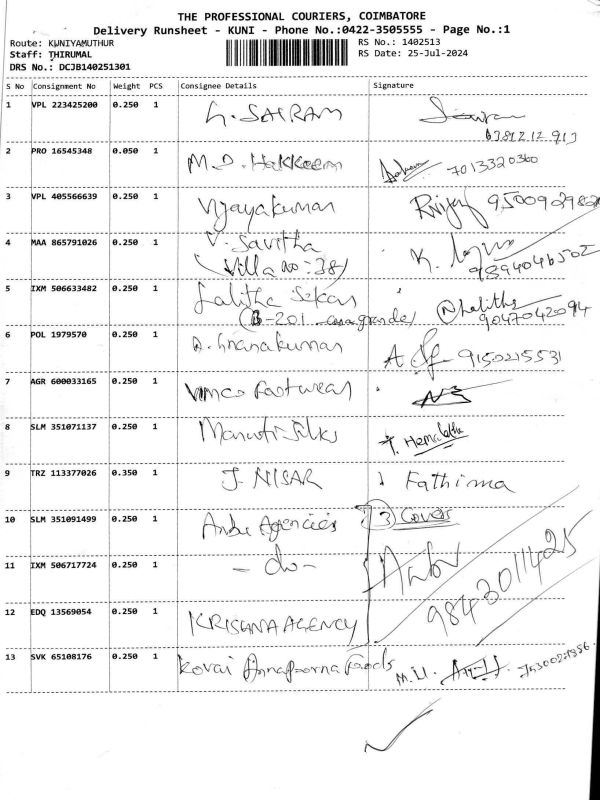 THE PROFESSIONAL COURIERS, COIMBATORE
Delivery Runsheet - KUNI - Phone No.:0422-3505555 - Page No.:1
Route: KUNIYAMUTHUR RS No.: 1402513
Staff: THIRUMAL RS Date: 25-Jul-2024
DRS No.: DCJB140251301
S No Consignment No Weight PCS Consignee Details Signature
1 VPL 223425200 0.250 1 G. SAIRAM
6381212913
2 PRO 16545348 0.050 1 M.D. Hakkeem 7013320360
3 VPL 405566639 0.250 1 Vijayakumar
4 MAA 865791026 0.250 1 V. Savitha
(Villa no-38) 9894046502
5 IXM 506633482 0.250 1 Lalitha Sekar
(B-201 casagrande) 9047042094
6 POL 1979570 0.250 1 Gnanakumar 9150215531
7 AGR 600033165 0.250 1 Vimco Footwear
8 SLM 351071137 0.250 1 Maruti Silks T. Hemalatha
9 TRZ 113377026 0.350 1 J. NISAR Fathima
10 SLM 351091499 0.250 1 Anbu Agencies (3) Covers
11 IXM 506717724 0.250 1 - do - Anbu
9843011425
12 EDQ 13569054 0.250 1 KRISHNA AGENCY
13 SVK 65108176 0.250 1 Kovai Annapoorna Foods